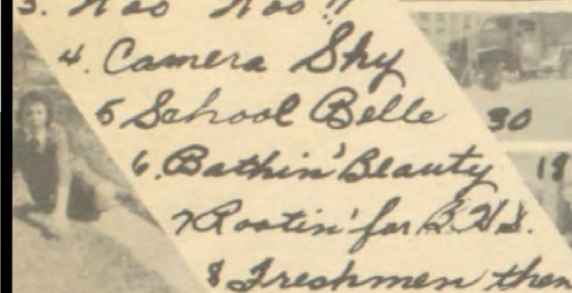 3. Woo Woo!!
4. Camera Shy
5 School Belle
30
6. Bathin' Beauty
19
7 Rootin' for B.H.S.
8 Freshmen then